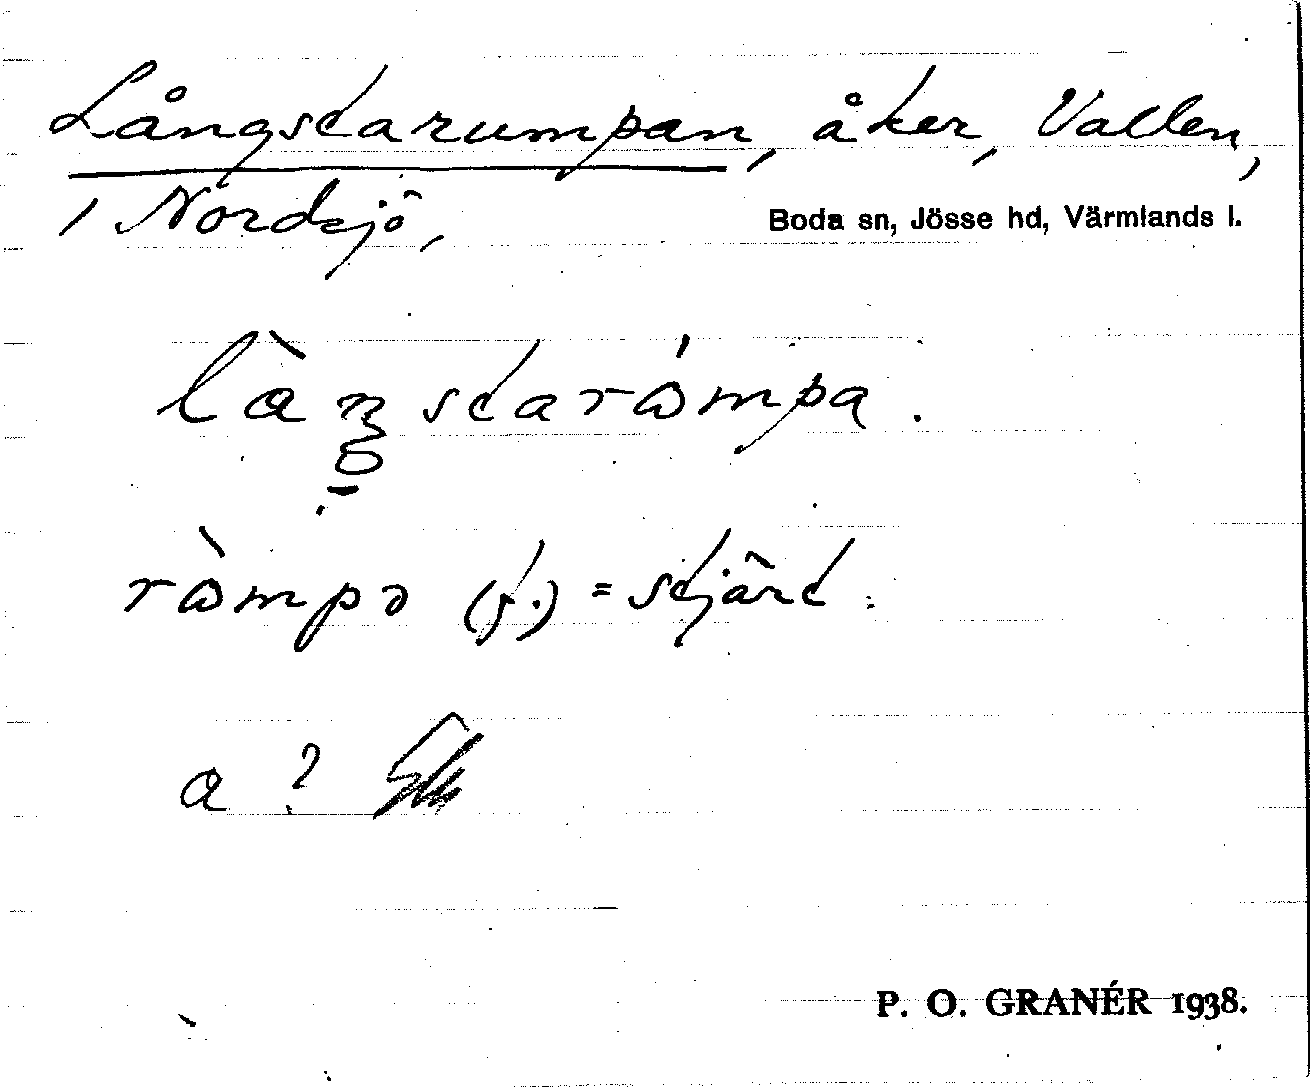 Långstarumpan, åker, Vallen,
1 Nordsjö,
Boda sn, Jösse hd, Värmlands l.
làŋstarómpa.
ròmpə (f.) = stjärt.
a ?
P. O. GRANÉR 1938.